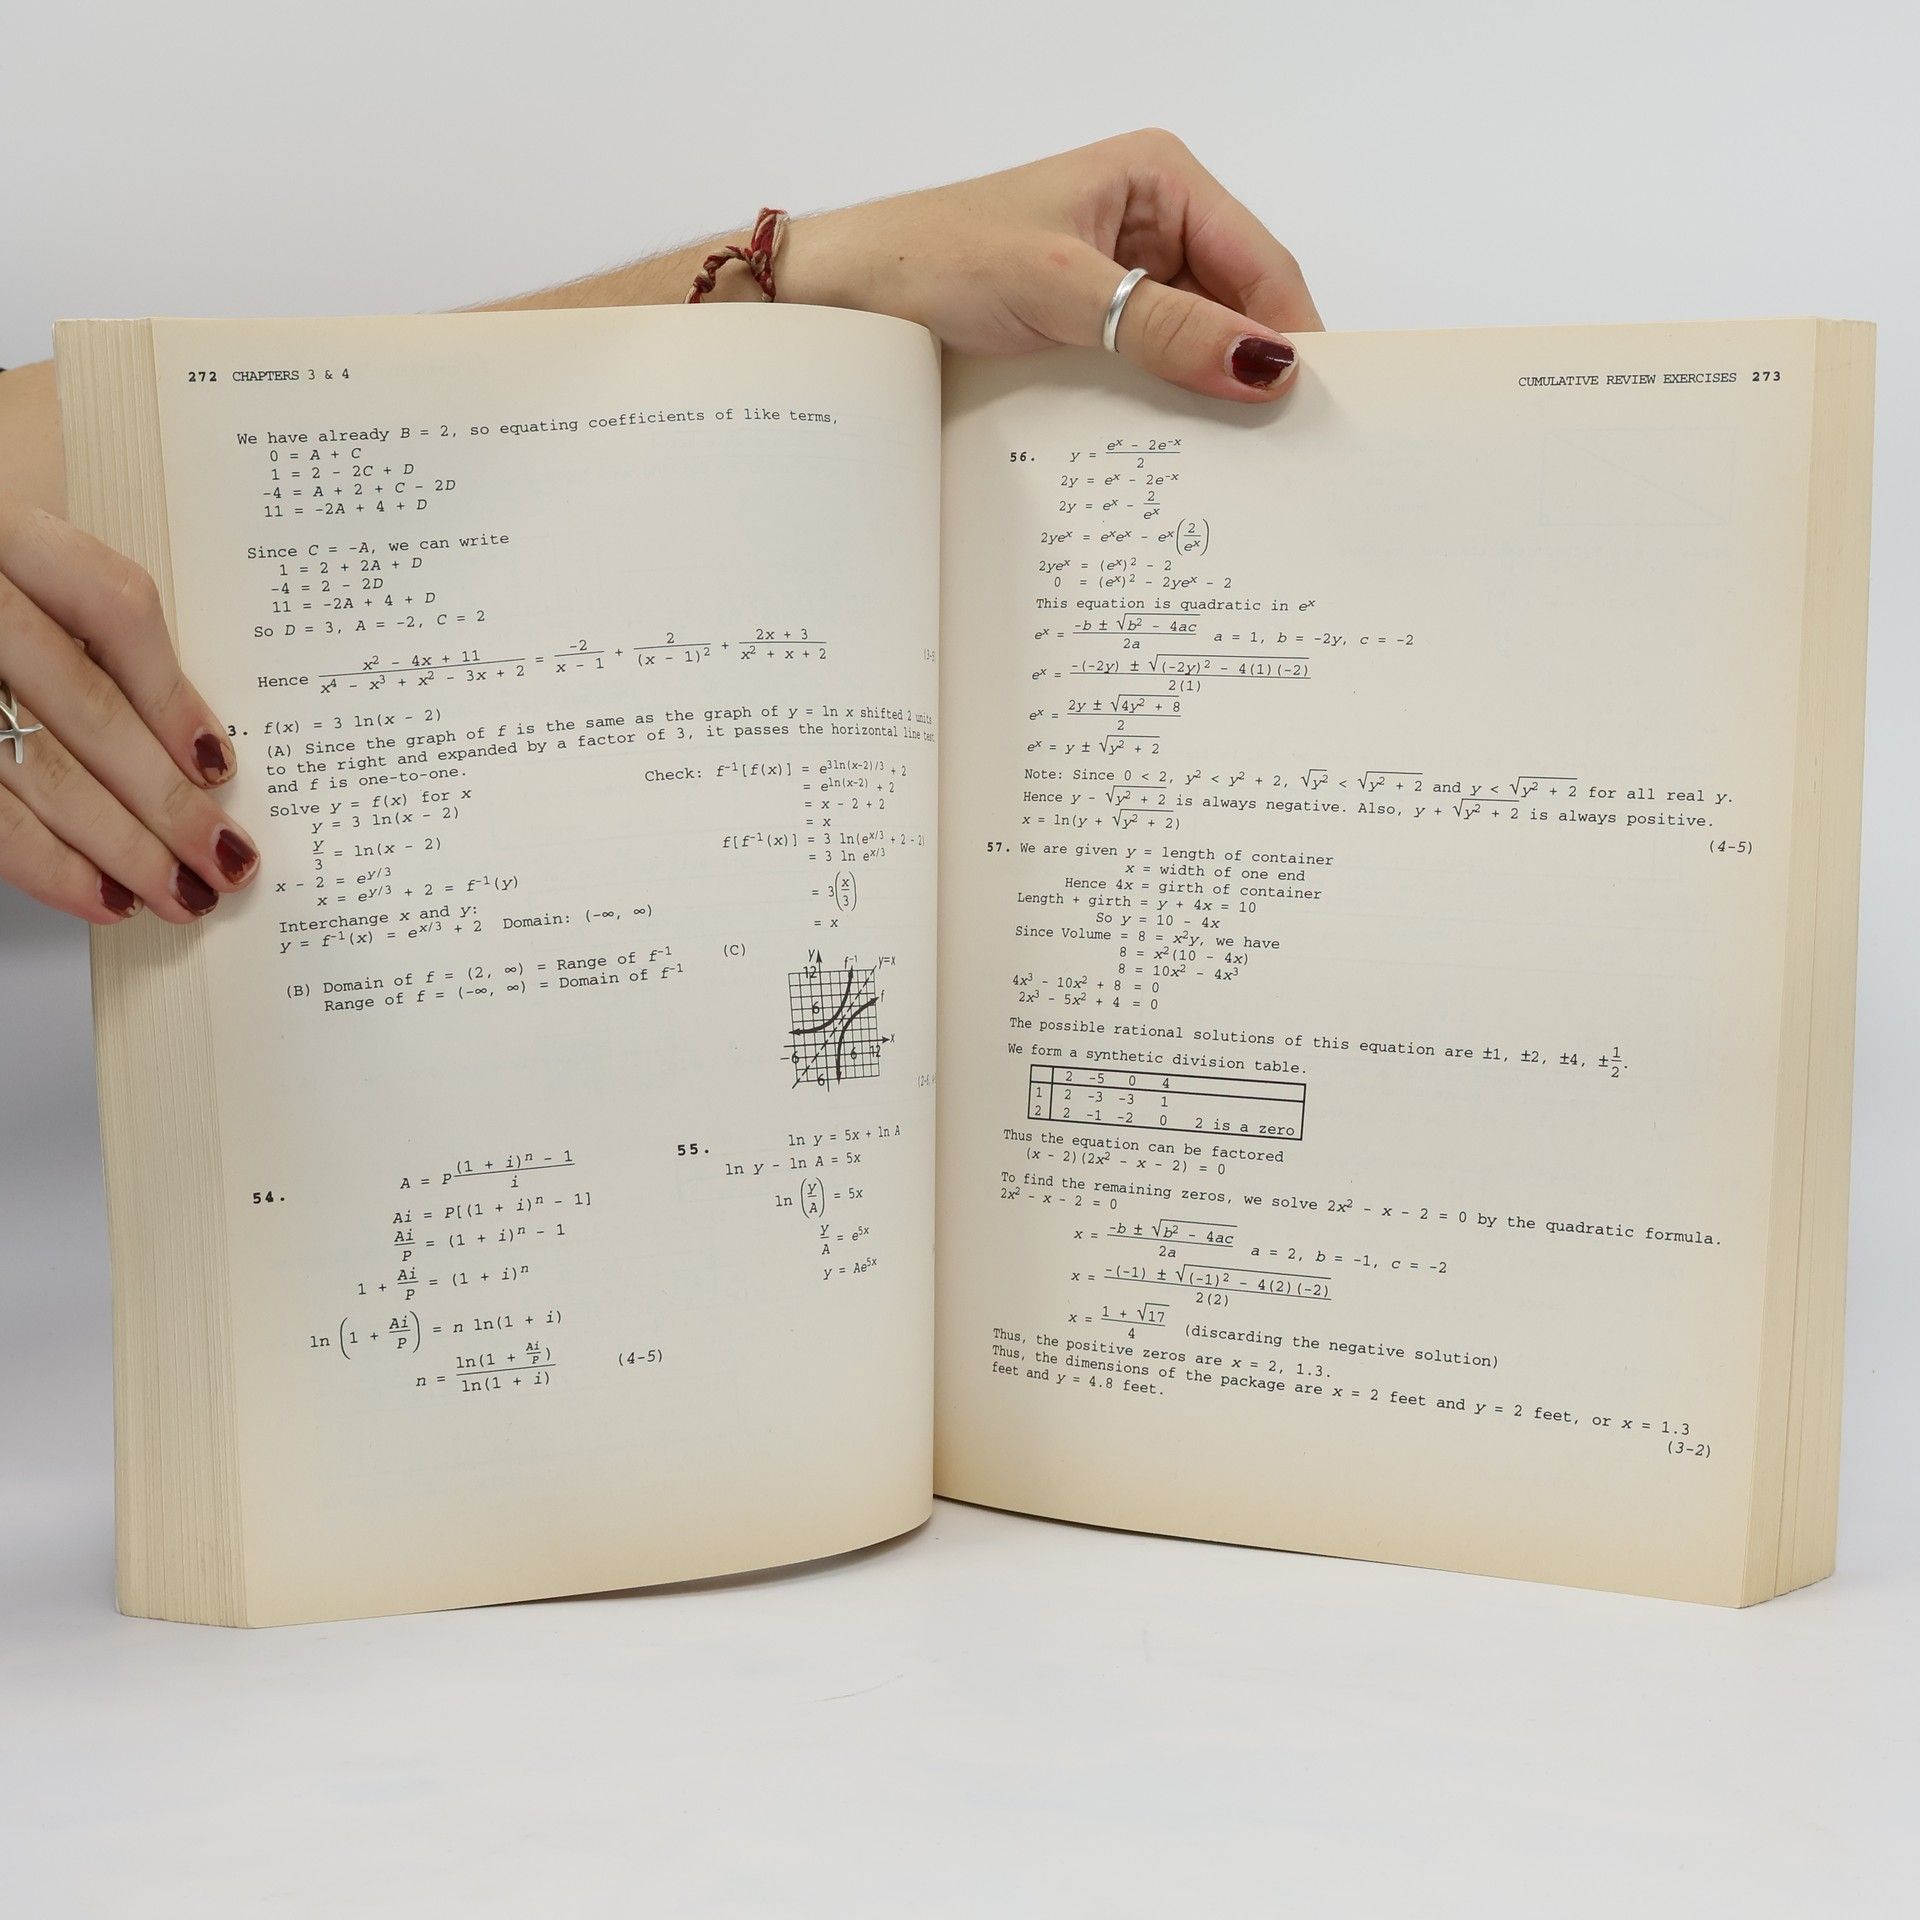 272 CHAPTERS 3 & 4
We have already B = 2, so equating coefficients of like terms,
0 = A + C
1 = 2 - 2C + D
-4 = A + 2 + C - 2D
11 = -2A + 4 + D
Since C = -A, we can write
1 = 2 + 2A + D
-4 = 2 - 2D
11 = -2A + 4 + D
So D = 3, A = -2, C = 2
Hence (x² - 4x + 11)/(x⁴ - x³ + x² - 3x + 2) = -2/(x - 1) + 2/(x - 1)² + (2x + 3)/(x² + x + 2)
3. f(x) = 3 ln(x - 2)
(A) Since the graph of f is the same as the graph of y = ln x shifted 2 units
to the right and expanded by a factor of 3, it passes the horizontal line test
and f is one-to-one.
Solve y = f(x) for x
y = 3 ln(x - 2)
y/3 = ln(x - 2)
x - 2 = e^(y/3)
x = e^(y/3) + 2 = f⁻¹(y)
Interchange x and y:
y = f⁻¹(x) = e^(x/3) + 2 Domain: (-∞, ∞)
Check: f⁻¹[f(x)] = e^(3ln(x-2)/3) + 2
= e^(ln(x-2)) + 2
= x - 2 + 2
= x
f[f⁻¹(x)] = 3 ln(e^(x/3) + 2 - 2)
= 3 ln e^(x/3)
= 3(x/3)
= x
(B) Domain of f = (2, ∞) = Range of f⁻¹
Range of f = (-∞, ∞) = Domain of f⁻¹
(C)
y f⁻¹ y=x
12
f
6
x
-6 6 12
6
54. A = P((1 + i)ⁿ - 1)/i
Ai = P[(1 + i)ⁿ - 1]
Ai/P = (1 + i)ⁿ - 1
1 + Ai/P = (1 + i)ⁿ
ln(1 + Ai/P) = n ln(1 + i)
n = ln(1 + Ai/P)/ln(1 + i) (4-5)
55. ln y = 5x + ln A
ln y - ln A = 5x
ln(y/A) = 5x
y/A = e^(5x)
y = Ae^(5x)
CUMULATIVE REVIEW EXERCISES 273
56. y = (eˣ - 2e⁻ˣ)/2
2y = eˣ - 2e⁻ˣ
2y = eˣ - 2/eˣ
2yeˣ = eˣeˣ - eˣ(2/eˣ)
2yeˣ = (eˣ)² - 2
0 = (eˣ)² - 2yeˣ - 2
This equation is quadratic in eˣ
eˣ = (-b ± √(b² - 4ac))/2a a = 1, b = -2y, c = -2
eˣ = (-(-2y) ± √((-2y)² - 4(1)(-2)))/2(1)
eˣ = (2y ± √(4y² + 8))/2
eˣ = y ± √(y² + 2)
Note: Since 0 < 2, y² < y² + 2, √(y²) < √(y² + 2) and y < √(y² + 2) for all real y.
Hence y - √(y² + 2) is always negative. Also, y + √(y² + 2) is always positive.
x = ln(y + √(y² + 2))
(4-5)
57. We are given y = length of container
x = width of one end
Hence 4x = girth of container
Length + girth = y + 4x = 10
So y = 10 - 4x
Since Volume = 8 = x²y, we have
8 = x²(10 - 4x)
8 = 10x² - 4x³
4x³ - 10x² + 8 = 0
2x³ - 5x² + 4 = 0
The possible rational solutions of this equation are ±1, ±2, ±4, ±1/2.
We form a synthetic division table.
2 -5 0 4
1 2 -3 -3 1
2 2 -1 -2 0 2 is a zero
Thus the equation can be factored
(x - 2)(2x² - x - 2) = 0
To find the remaining zeros, we solve 2x² - x - 2 = 0 by the quadratic formula.
2x² - x - 2 = 0
x = (-b ± √(b² - 4ac))/2a a = 2, b = -1, c = -2
x = (-(-1) ± √((-1)² - 4(2)(-2)))/2(2)
x = (1 + √17)/4 (discarding the negative solution)
Thus, the positive zeros are x = 2, 1.3.
Thus, the dimensions of the package are x = 2 feet and y = 2 feet, or x = 1.3
feet and y = 4.8 feet.
(3-2)